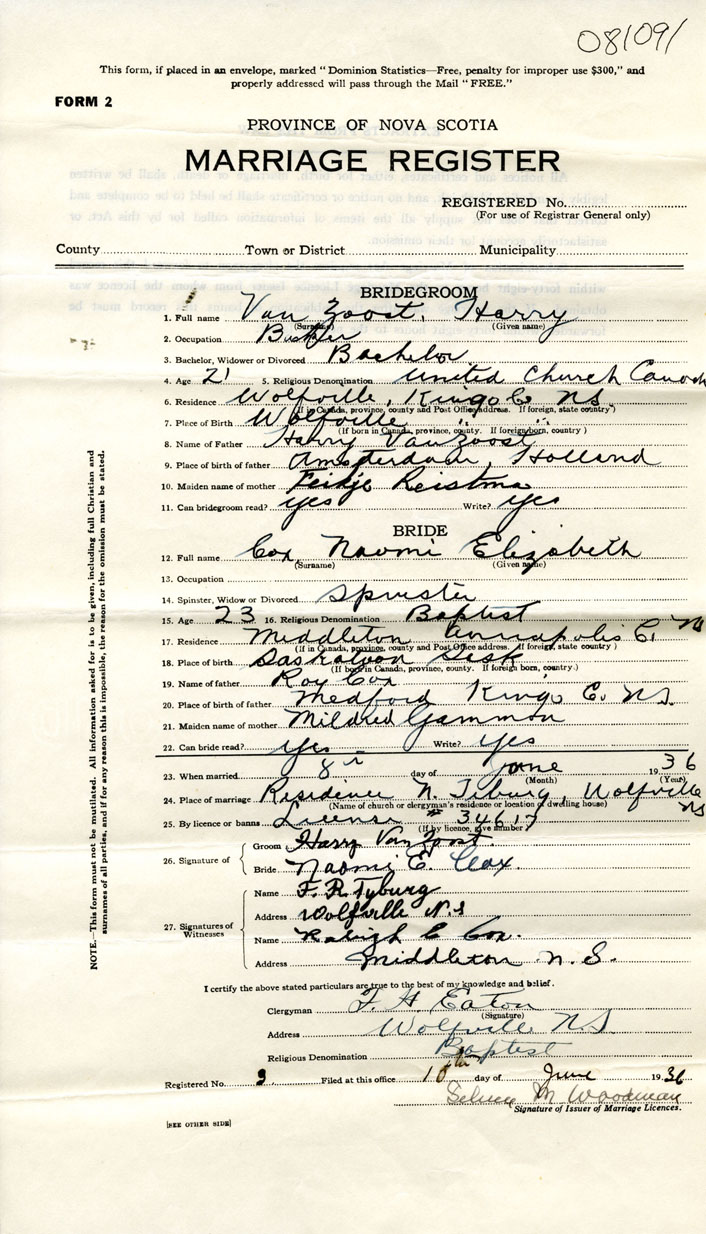 08109/
This form, if placed in an envelope, marked "Dominion Statistics—Free, penalty for improper use $300," and
properly addressed will pass through the Mail "FREE."
FORM 2
PROVINCE OF NOVA SCOTIA
MARRIAGE REGISTER
REGISTERED No.
(For use of Registrar General only)
County Town or District Municipality
BRIDEGROOM
1. Full name Van Zoost, Harry
(Surname) (Given name)
2. Occupation
3. Bachelor, Widower or Divorced Bachelor
4. Age 21 5. Religious Denomination United Church Canada
6. Residence Wolfville, Kings Co NS
(If in Canada, province, county and Post Office address. If foreign, state country)
7. Place of Birth Wolfville " "
(If born in Canada, province, county. If foreign born, country)
8. Name of Father Harry Van Zoost
9. Place of birth of father Amsterdam, Holland
10. Maiden name of mother Reistma
11. Can bridegroom read? yes Write? yes
BRIDE
12. Full name Cox Naomi Elizabeth
(Surname) (Given name)
13. Occupation
14. Spinster, Widow or Divorced Spinster
15. Age 23 16. Religious Denomination Baptist
17. Residence Middleton Annapolis C. NS
(If in Canada, province, county and Post Office address. If foreign, state country)
18. Place of birth Saskatoon Sask
(If born in Canada, province, county. If foreign born, country.)
19. Name of father Roy Cox
20. Place of birth of father Medford Kings C. NS.
21. Maiden name of mother Mildred Gammon
22. Can bride read? yes Write? yes
23. When married 8th day of June 1936
(Month) (Year)
24. Place of marriage Residence N. Tyburg, Wolfville NS
(Name of church or clergyman's residence or location of dwelling house)
25. By licence or banns License # 34617
(If by licence, give number)
26. Signature of Groom Harry Van Zoost
Bride Naomi E. Cox.
27. Signatures of Witnesses Name F. R. Tyburg
Address Wolfville N.S
Name Raleigh C Cox.
Address Middleton N. S.
I certify the above stated particulars are true to the best of my knowledge and belief.
Clergyman F. H. Eaton
(Signature)
Address Wolfville NS
Religious Denomination Baptist
Registered No. 9. Filed at this office 10th day of June 1936
M Woodman
Signature of Issuer of Marriage Licences.
[SEE OTHER SIDE]
NOTE.—This form must not be mutilated. All information asked for is to be given, including full Christian and
surnames of all parties, and if for any reason this is impossible, the reason for the omission must be stated.